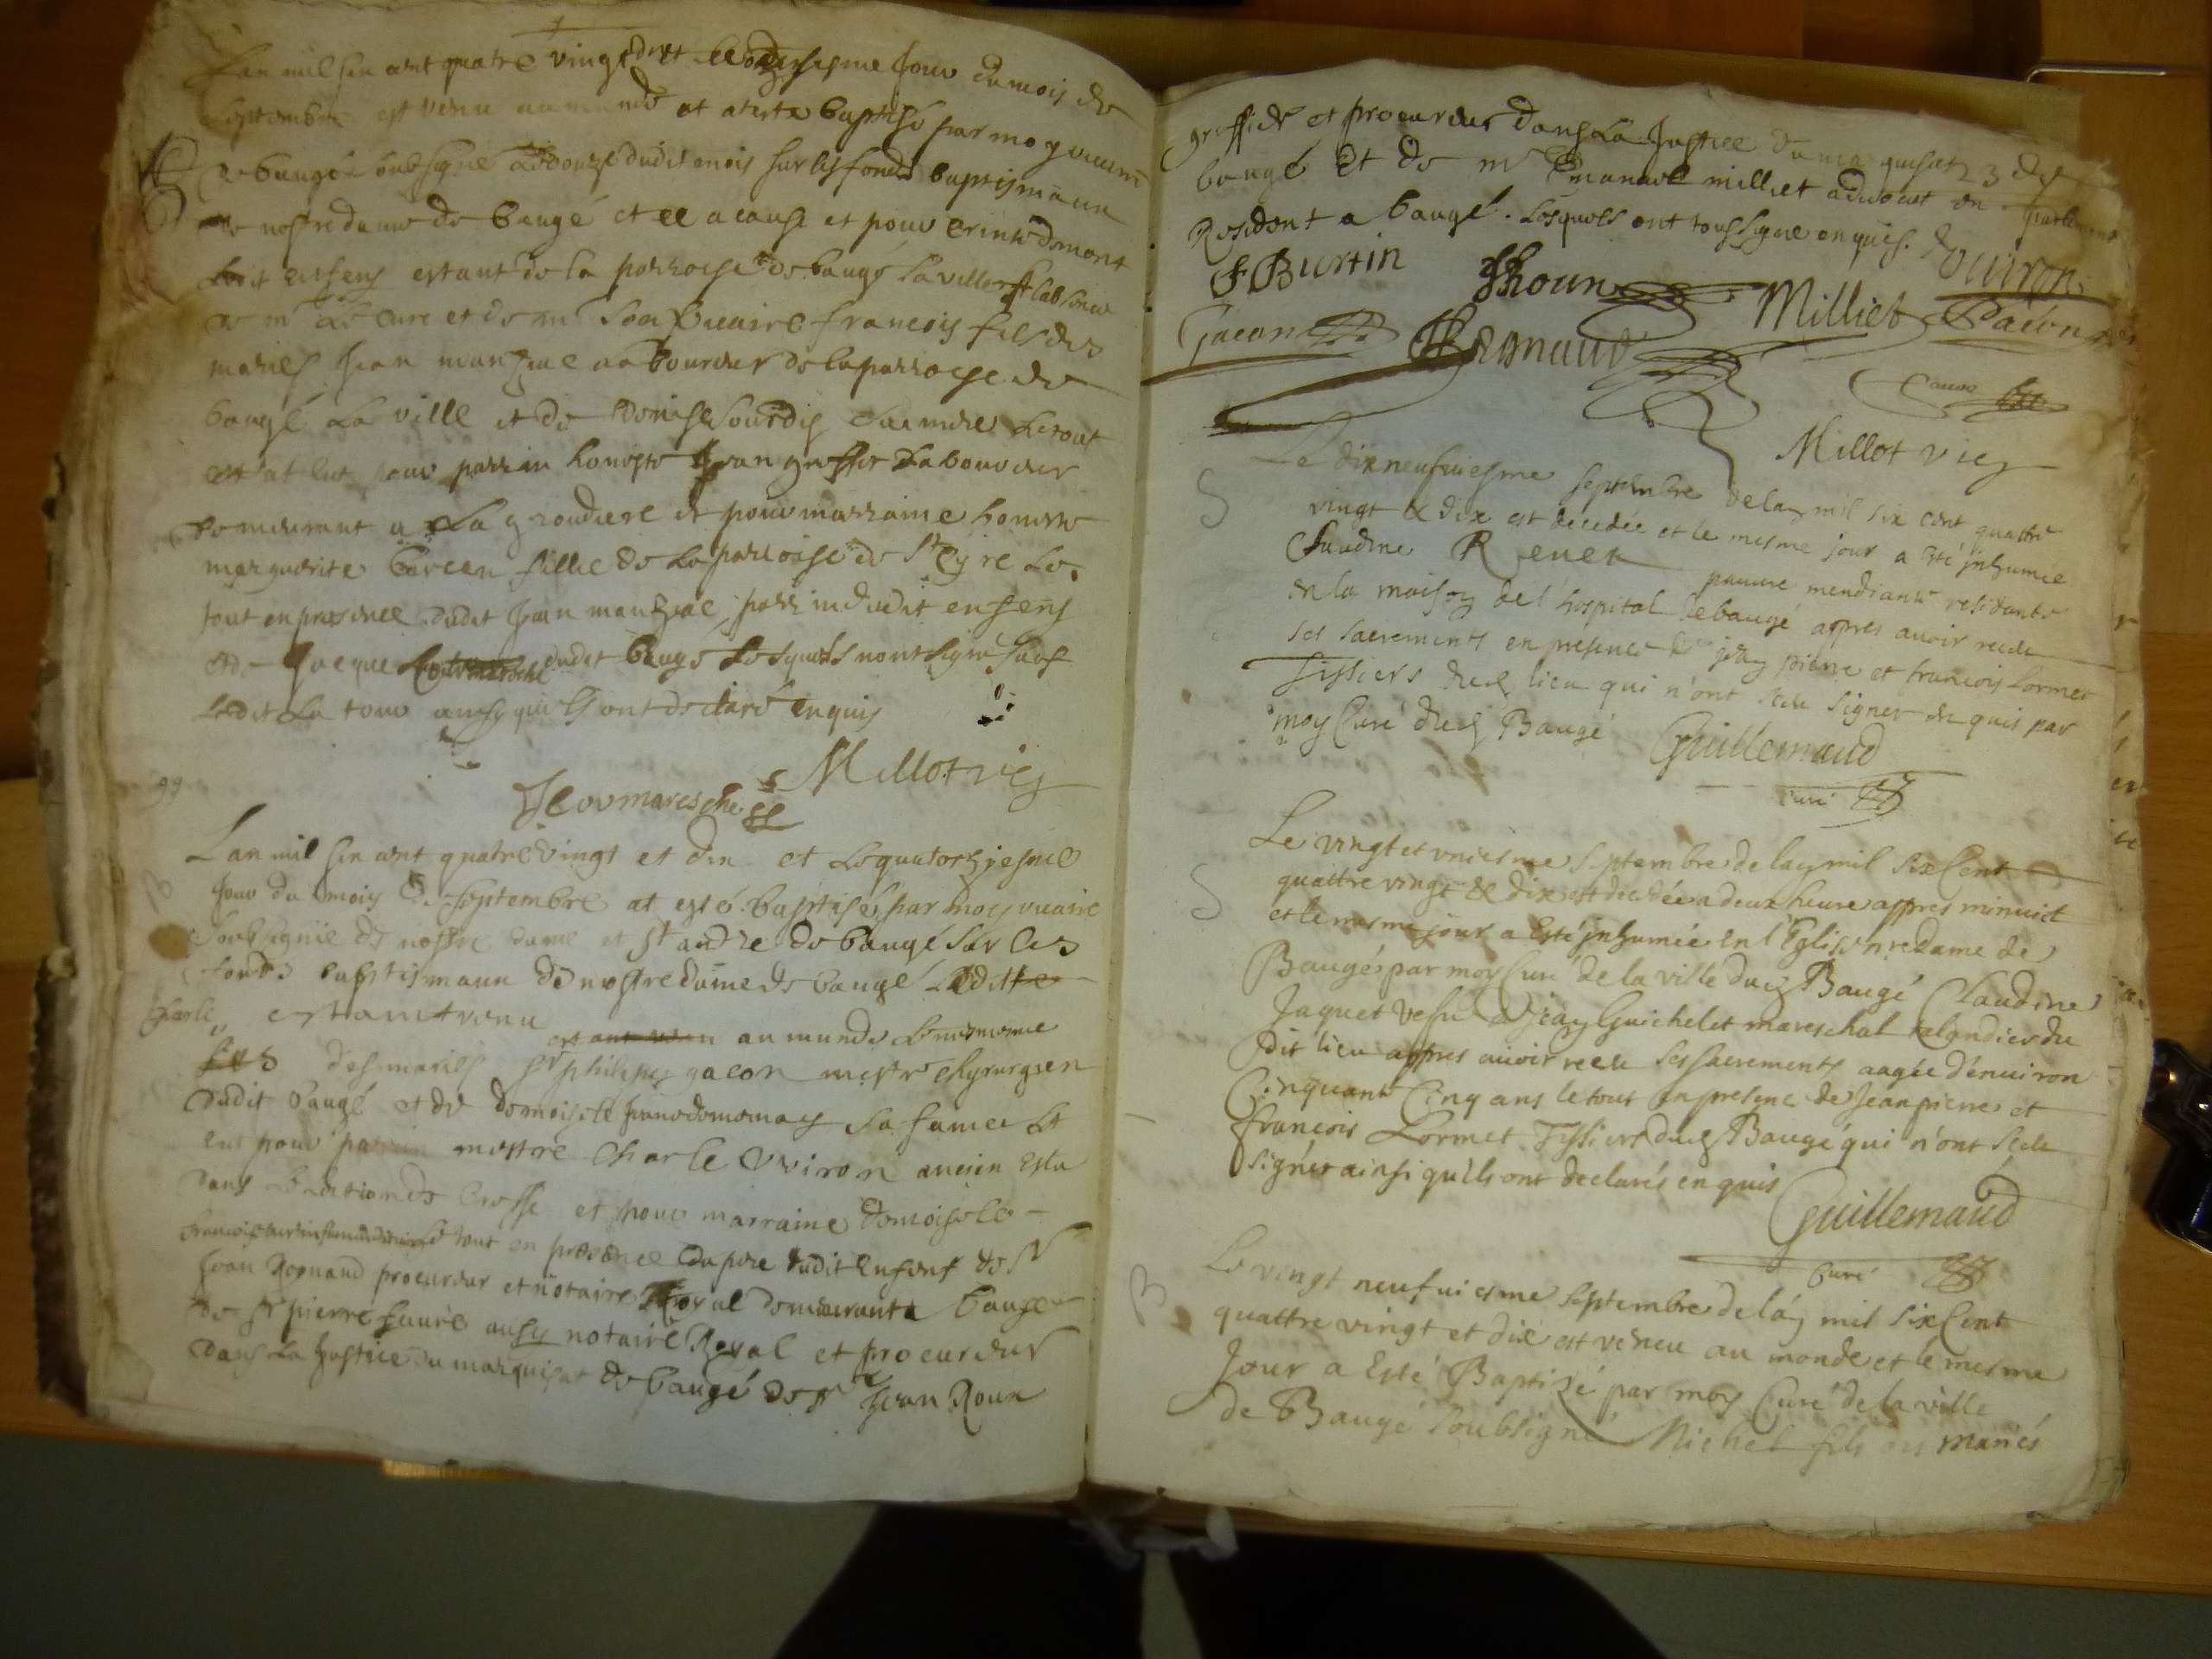 Lan mil six cent quatre vingt dix et le onziesme Jour du mois de
Septembre est venu au monde et at este baptisé par moy vicaire
de baugé soubsigné Le douze dudit mois sur les fonds baptismaux
de nostre dame de baugé et ce a cause et pour crainte de mort
estant de la parroisse de baugé la ville et labsence
de mr Le Cure et de mr son vicaire francois fils des
mariés Jean manziac laboureur de la parroisse de
baugé La ville et de Denise Sourdis Le tout
et at eut pour parrin honeste Jean greffet Laboureur
demeurant a La groudiere et pour marraine honeste
marguerite fillie de La parroisse de St Cyre Le
tout en presence dudit Jean manziac, parrin dudit ensens
et de Jacque dudit baugé Lesquels nont signé sauf
Ledit La tour ainsy quils ont declaré enquis
Millot vic
J Coumaresche
Lan mil six cent quatre vingt et dix et Le quatorziesme
Jour du mois de Septembre at esté baptisé par moy vicaire
Soubsigné de nostre dame et St andre de baugé sur les
fonds baptismaux de nostre dame de baugé
Charle estant venu
au monde Le mesme
fils des mariés Sr philipes gacon mestre chyrurgien
dudit baugé et de domoiselle sa fame et
eut pour parrin mestre Charle Ouviron ancien
dans et pour marraine domoiselle
Le tout en presence du pere dudit Enfant de Sr
Jean Regnaud procureur et notaire Royal demeurant a baugé
de Sr pierre faure aussy notaire Royal et procureur
dans La Justice du marquisat de baugé de Sr Jean Roux
greffier et procureur dans La Justice du marquisat de
baugé Et de mr Emanuel milliet advocat en parlement
Resident a baugé. Lesquels ont tous signé enquis. Douviron
F Burtin
JRoux
Milliet
Gacon
Regnaud
Millot vic
Le dix neufuiesme septembre de lan mil six cent quattre
vingt & dix est decedée et le mesme jour a Esté jnhumée
Claudine Renet pauure mendiante residante
en la maison de l'hospital de baugé appres auoir receu
ses sacrements en presence de jean pierre et francois Lormet
tissiers dud lieu qui n'ont sceu signer enquis par
moy Curé dud Baugé
Guillemaud
curé
Le vingt et vniesme septembre de lan mil six Cent
quattre vingt & dix est decedée a deux heure appres minuict
et le mesme jour a Esté jnhumée en l'Eglise nre dame de
Baugé par moy Curé de la ville dud Baugé Claudine
Jaquet vefue a jean Guichelet mareschal talandier du
dit lieu appres auoir receu ses sacrements aagée d'enuiron
Cinquante Cinq ans le tout en presence de Jean pierre et
francois Lormet Tissiers dud Baugé qui n'ont sceu
signer ainsi quils ont declarés enquis
Guillemaud
Curé
B Le vingt neufuiesme septembre de lan mil six Cent
quattre vingt et dix est veneu au monde et le mesme
Jour a Esté Baptizé par moy Curé de la ville
de Baugé soubsigné Michel fils des mariés